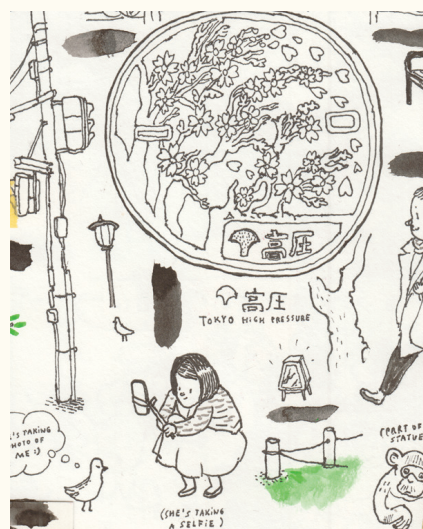 高圧
高圧
TOKYO HIGH PRESSURE
TAKING
PHOTO OF
ME :)
(SHE'S TAKING
A SELFIE)
(PART OF
STATUE